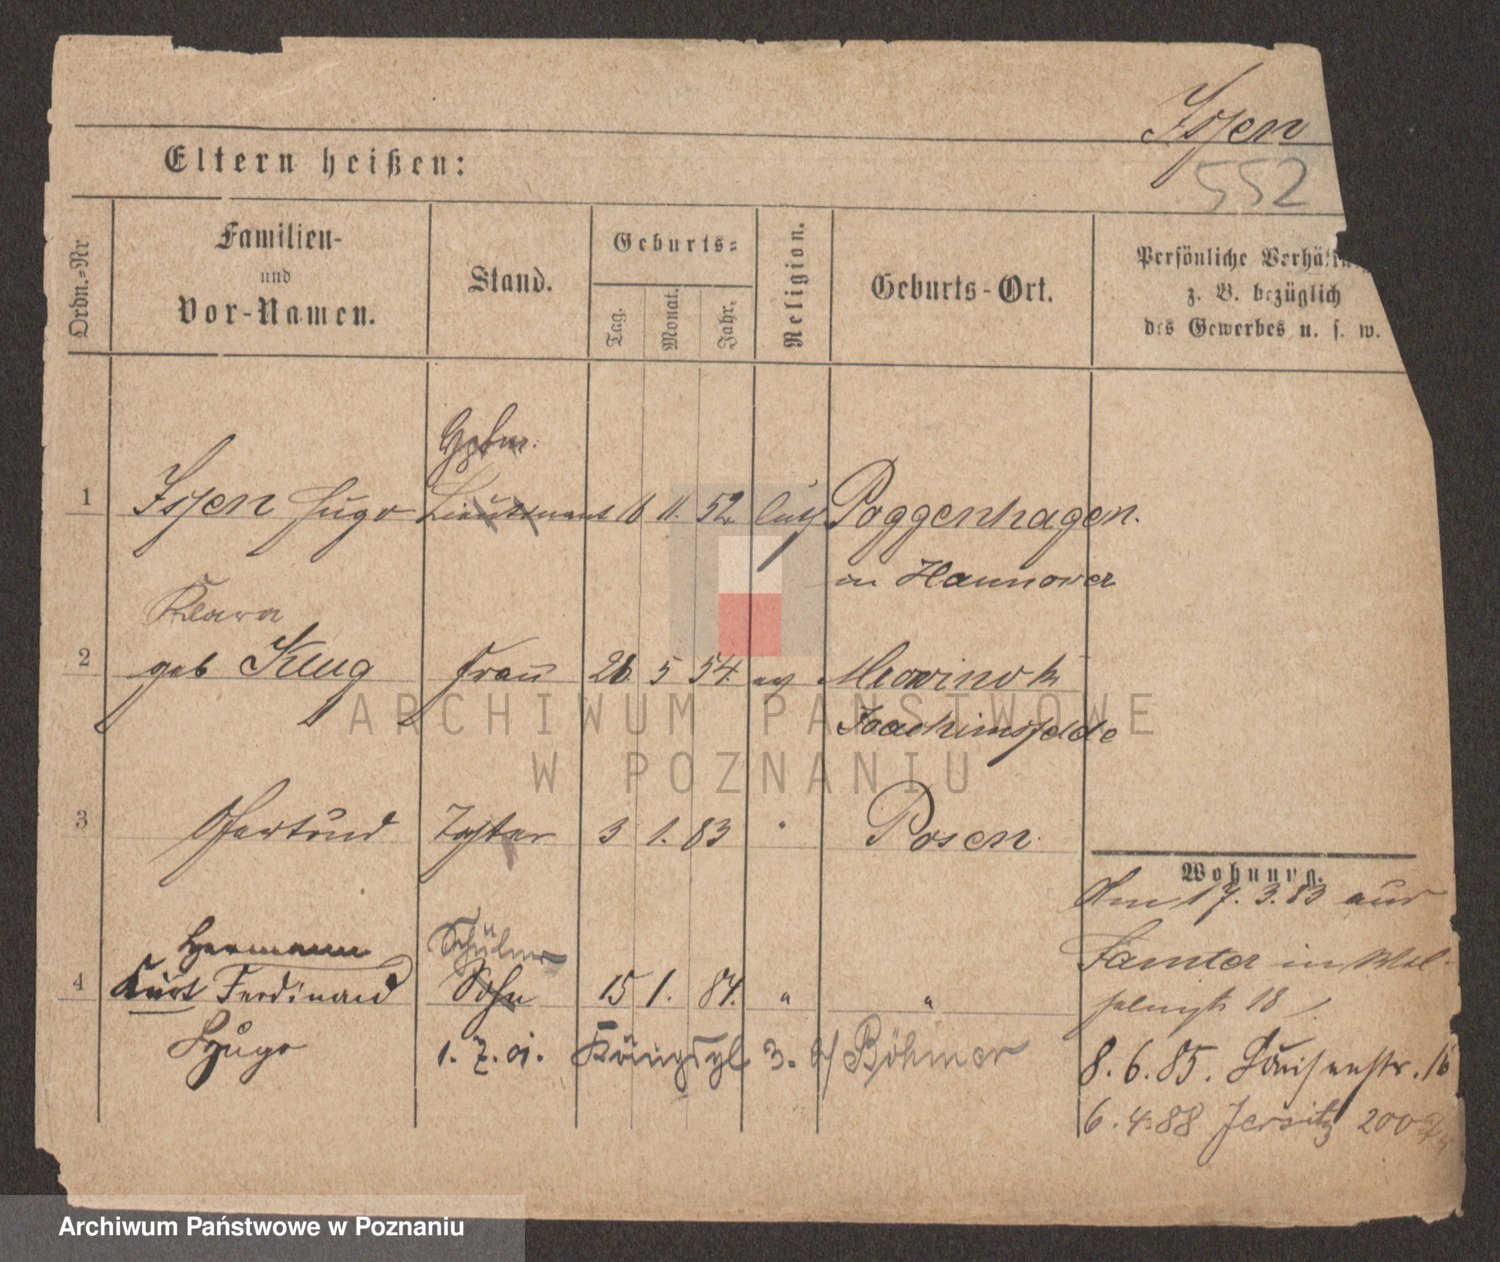 Issen
552
Eltern heißen:
Ordn.-Nr.
Familien-
und
Vor-Namen.
Stand.
Geburts-
Tag.
Monat.
Jahr.
Religion.
Geburts-Ort.
Persönliche
z. B. bezüglich
des Gewerbes u. s. w.
1 Issen Hugo Lieutenant 11. 52 Poggenhagen.
in Hannover
Klara
2 geb Krug Frau 26 5 54. ev
Joachimsfelde
3 Gertrud Tochter 3 1. 83 " Posen
Wohnung.
Am 17. 3. 83 aus
Samter in
18
Hermann
Schüler
4 Kurt Ferdinand Sohn 15 1. 84. " "
Hugo
1. 7. 01. 3. Böhmer
8. 6. 85. Louisenstr. 16
6. 4. 88 Jersitz 200
ARCHIWUM PAŃSTWOWE
W POZNANIU
Archiwum Państwowe w Poznaniu